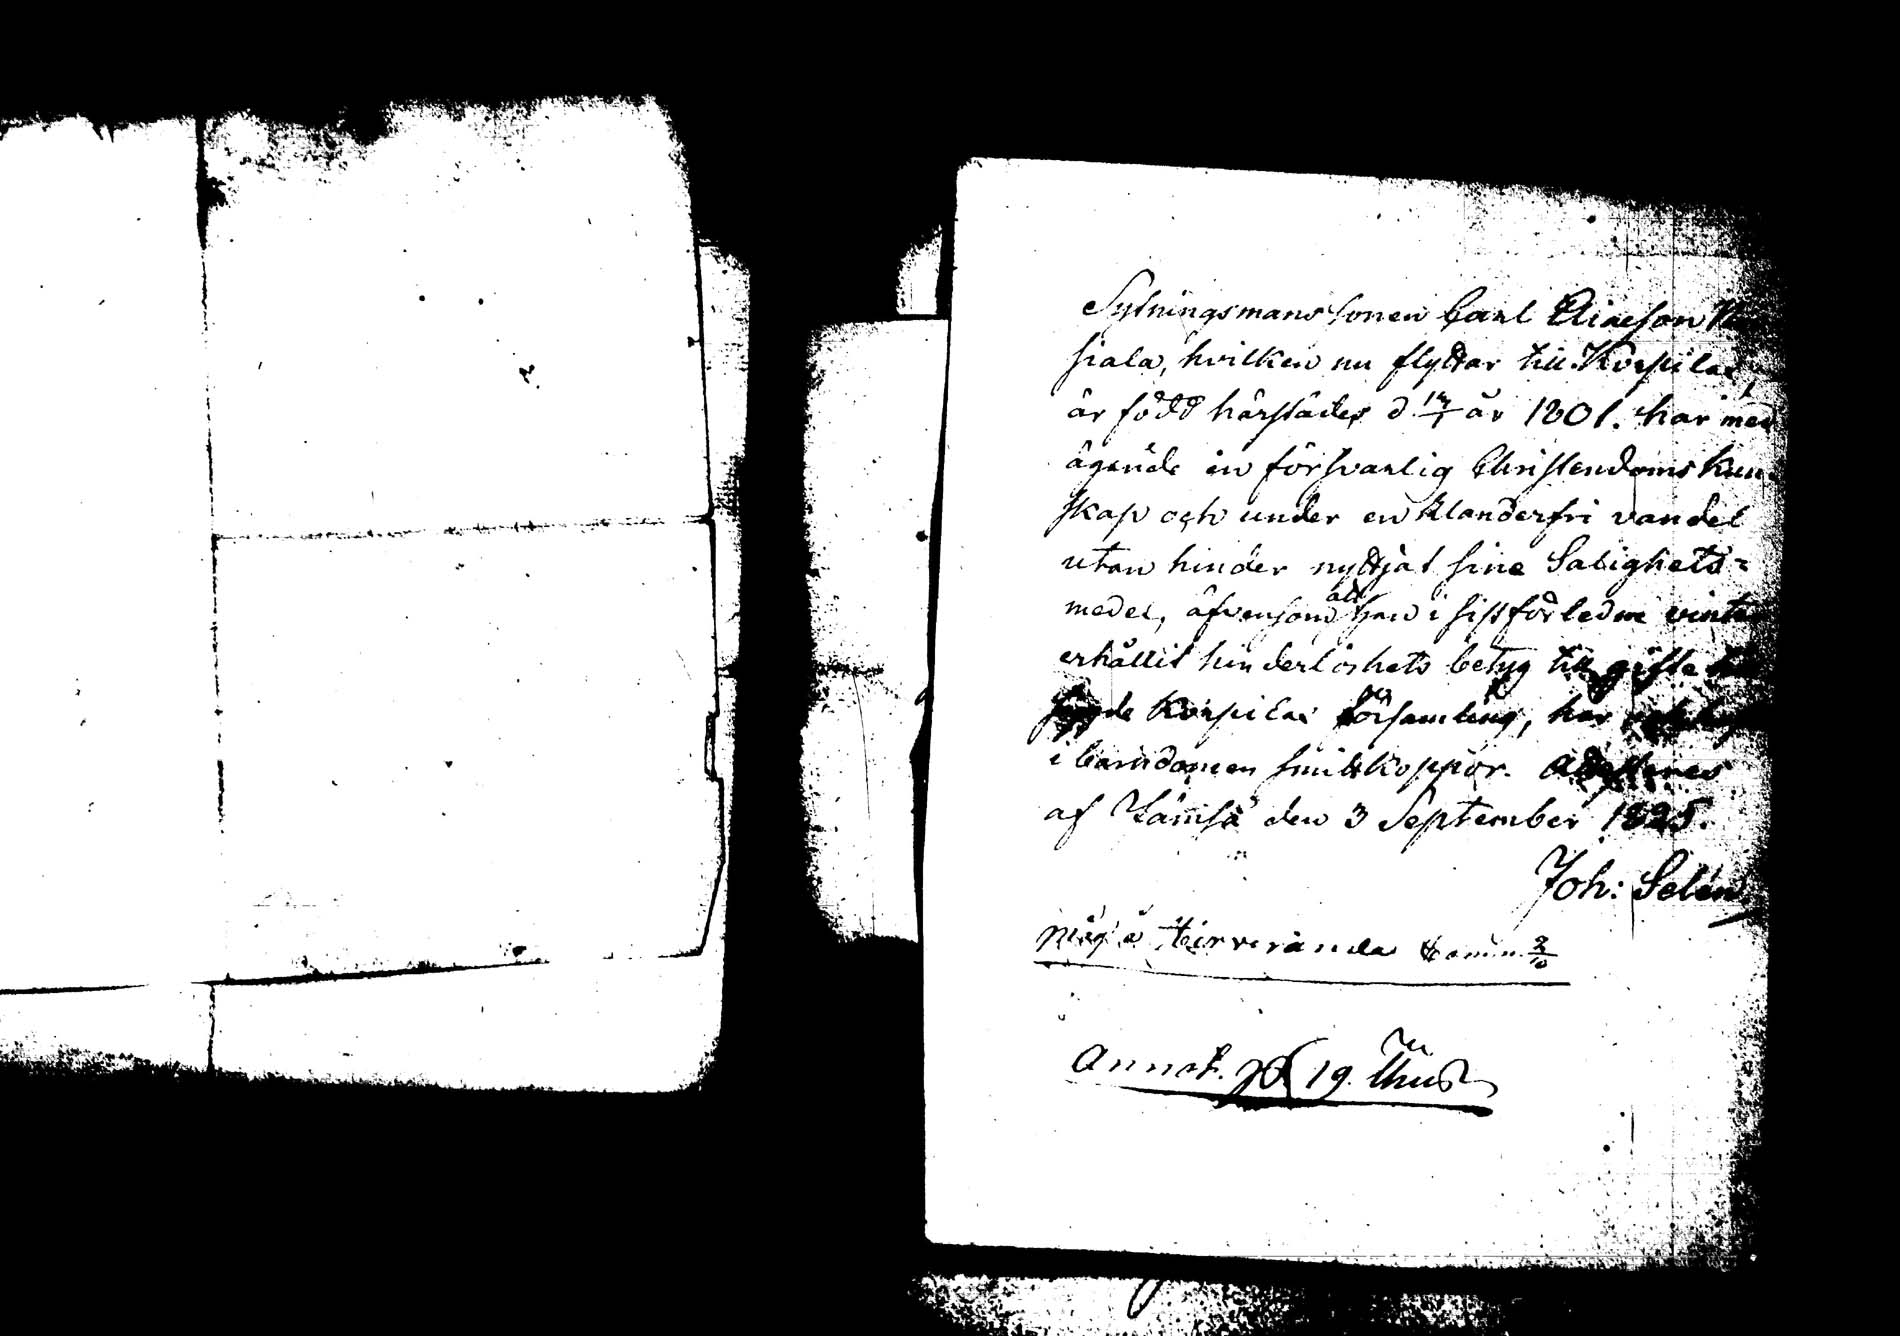 Sytningsmans sonen Carl Eliaeson
siala, hvilken nu flyttar till Korpilax,
är född härstädes d 17/7 år 1801. har med
ägande en försvarlig Christendoms kun
skap och under en klanderfri vandel
utan hinder nyttjat sine Salighets=
medel, äfvensom att han i sistförledne vinter
erhållit hinderlöshets betyg till gifte
Korpilax församling, har
i barndomen haft koppor. Attesteres
af Jämsä den 3 September 1825.
Joh: Selén
2/10
Annot. 19.